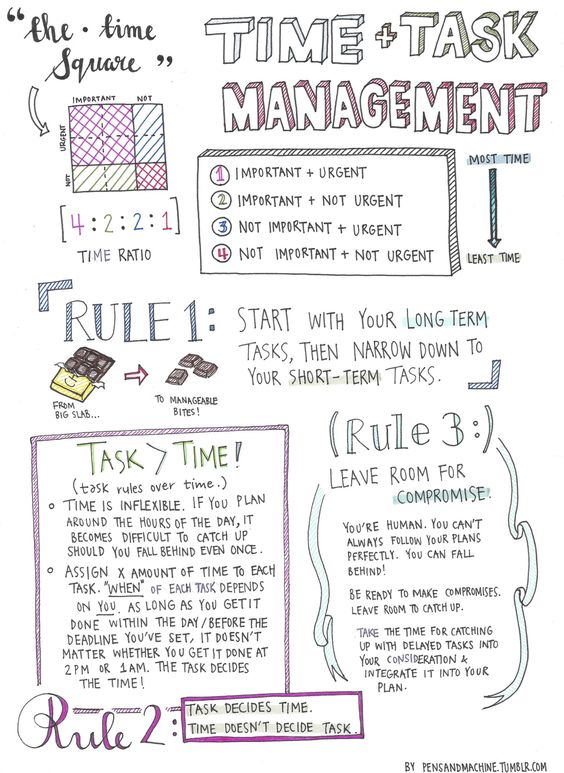 "the • time
Square"
TIME + TASK
MANAGEMENT
IMPORTANT NOT
URGENT
NOT
[4:2:2:1]
TIME RATIO
1 IMPORTANT + URGENT
2 IMPORTANT + NOT URGENT
3 NOT IMPORTANT + URGENT
4 NOT IMPORTANT + NOT URGENT
MOST TIME
LEAST TIME
RULE 1:
START WITH YOUR LONG TERM
TASKS, THEN NARROW DOWN TO
YOUR SHORT-TERM TASKS.
FROM
BIG SLAB...
TO MANAGEABLE
BITES!
TASK > TIME!
(task rules over time.)
○ TIME IS INFLEXIBLE. IF YOU PLAN
AROUND THE HOURS OF THE DAY, IT
BECOMES DIFFICULT TO CATCH UP
SHOULD YOU FALL BEHIND EVEN ONCE.
○ ASSIGN X AMOUNT OF TIME TO EACH
TASK. "WHEN" OF EACH TASK DEPENDS
ON YOU. AS LONG AS YOU GET IT
DONE WITHIN THE DAY/BEFORE THE
DEADLINE YOU'VE SET, IT DOESN'T
MATTER WHETHER YOU GET IT DONE AT
2PM OR 1AM. THE TASK DECIDES
THE TIME!
Rule 2:
TASK DECIDES TIME.
TIME DOESN'T DECIDE TASK.
(Rule 3:)
LEAVE ROOM FOR
COMPROMISE.
YOU'RE HUMAN. YOU CAN'T
ALWAYS FOLLOW YOUR PLANS
PERFECTLY. YOU CAN FALL
BEHIND!
BE READY TO MAKE COMPROMISES.
LEAVE ROOM TO CATCH UP.
TAKE THE TIME FOR CATCHING
UP WITH DELAYED TASKS INTO
YOUR CONSIDERATION &
INTEGRATE IT INTO YOUR
PLAN.
BY PENSANDMACHINE.TUMBLR.COM